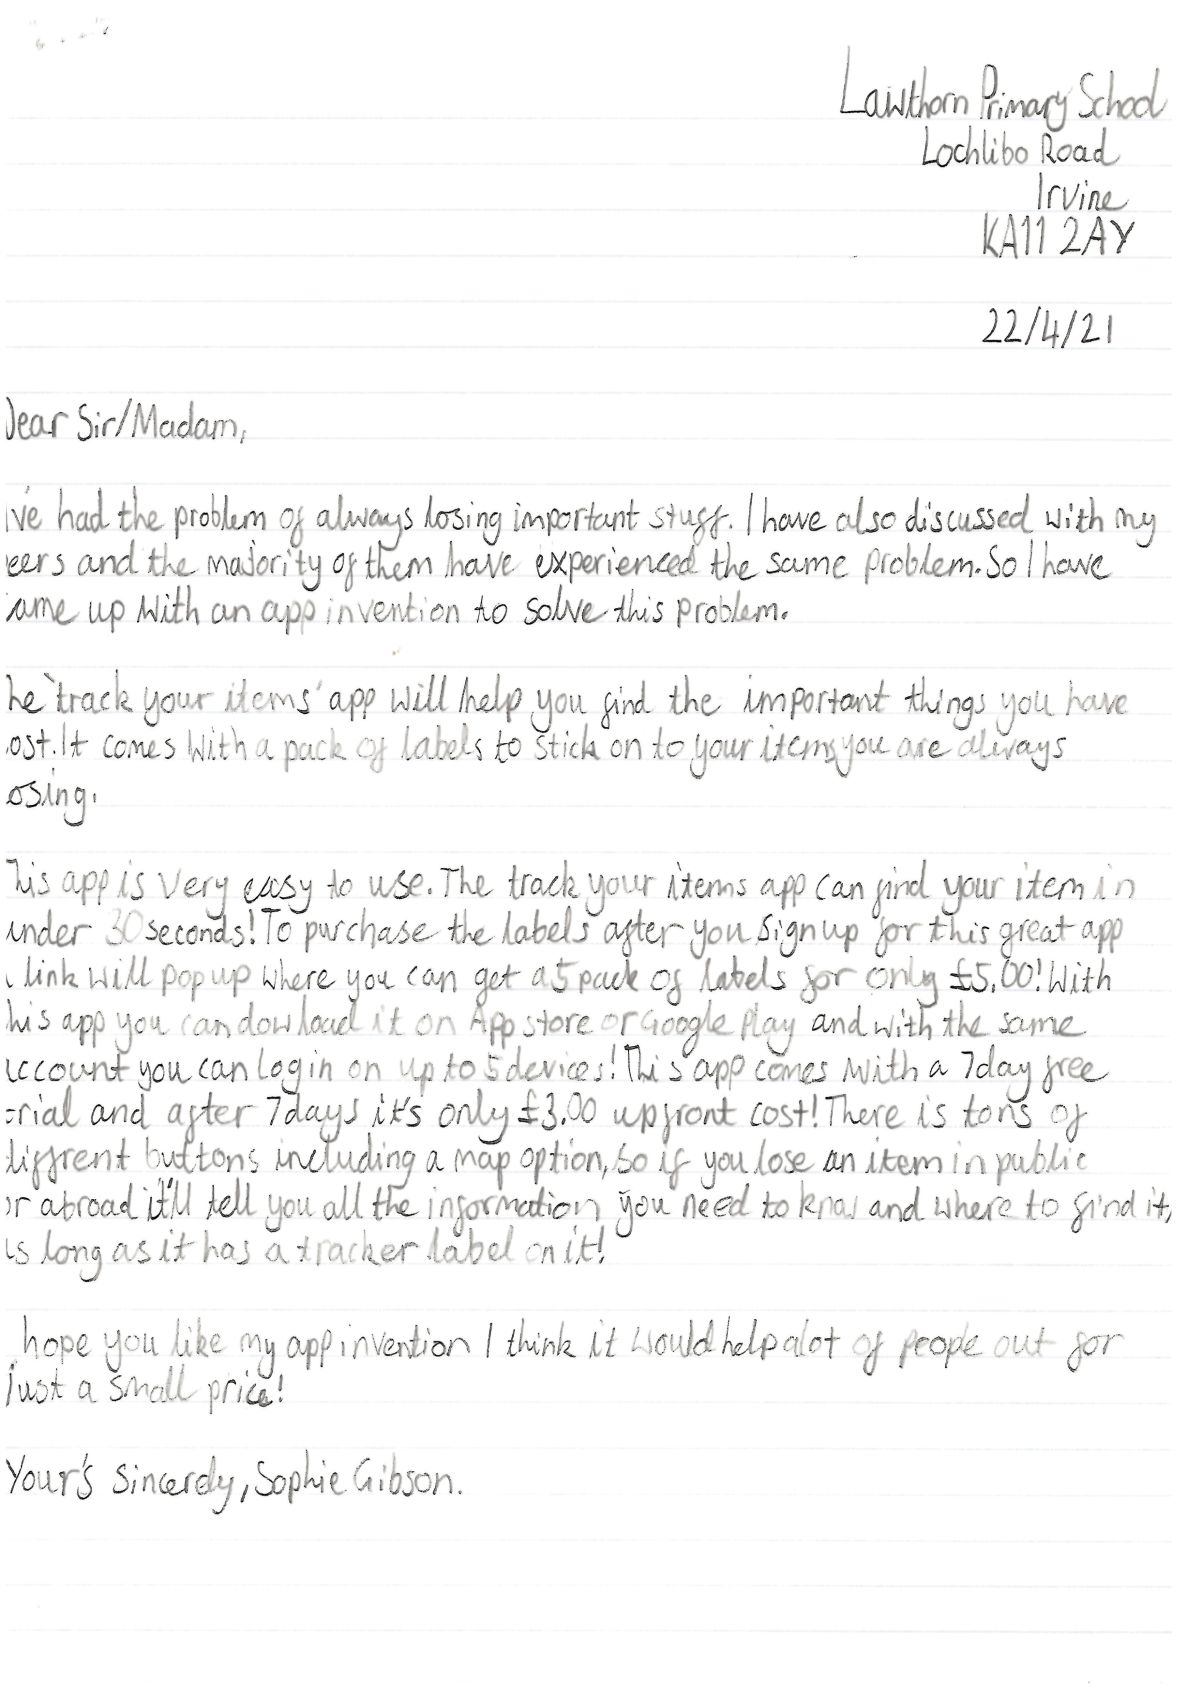 Lawthorn Primary School
Lochlibo Road
Irvine
KA11 2AY
22/4/21
Dear Sir/Madam,
I've had the problem of always losing important stuff. I have also discussed with my
eers and the majority of them have experienced the same problem. So I have
came up with an app invention to solve this problem.
he 'track your items' app will help you find the important things you have
ost. It comes with a pack of labels to stick on to your items you are always
osing.
This app is very easy to use. The track your items app can find your item in
under 30 seconds! To purchase the labels after you sign up for this great app
a link will pop up where you can get a 5 pack of labels for only £5.00! With
this app you can dowload it on App store or Google Play and with the same
account you can log in on up to 5 devices! This app comes with a 7day free
trial and after 7days it's only £3.00 upfront cost! There is tons of
diffrent buttons including a map option, So if you lose an item in public
or abroad it'll tell you all the information you need to know and where to find it,
as long as it has a tracker label on it!
hope you like my app invention I think it would help alot of peope out for
just a small price!
Your's Sincerely, Sophie Gibson.